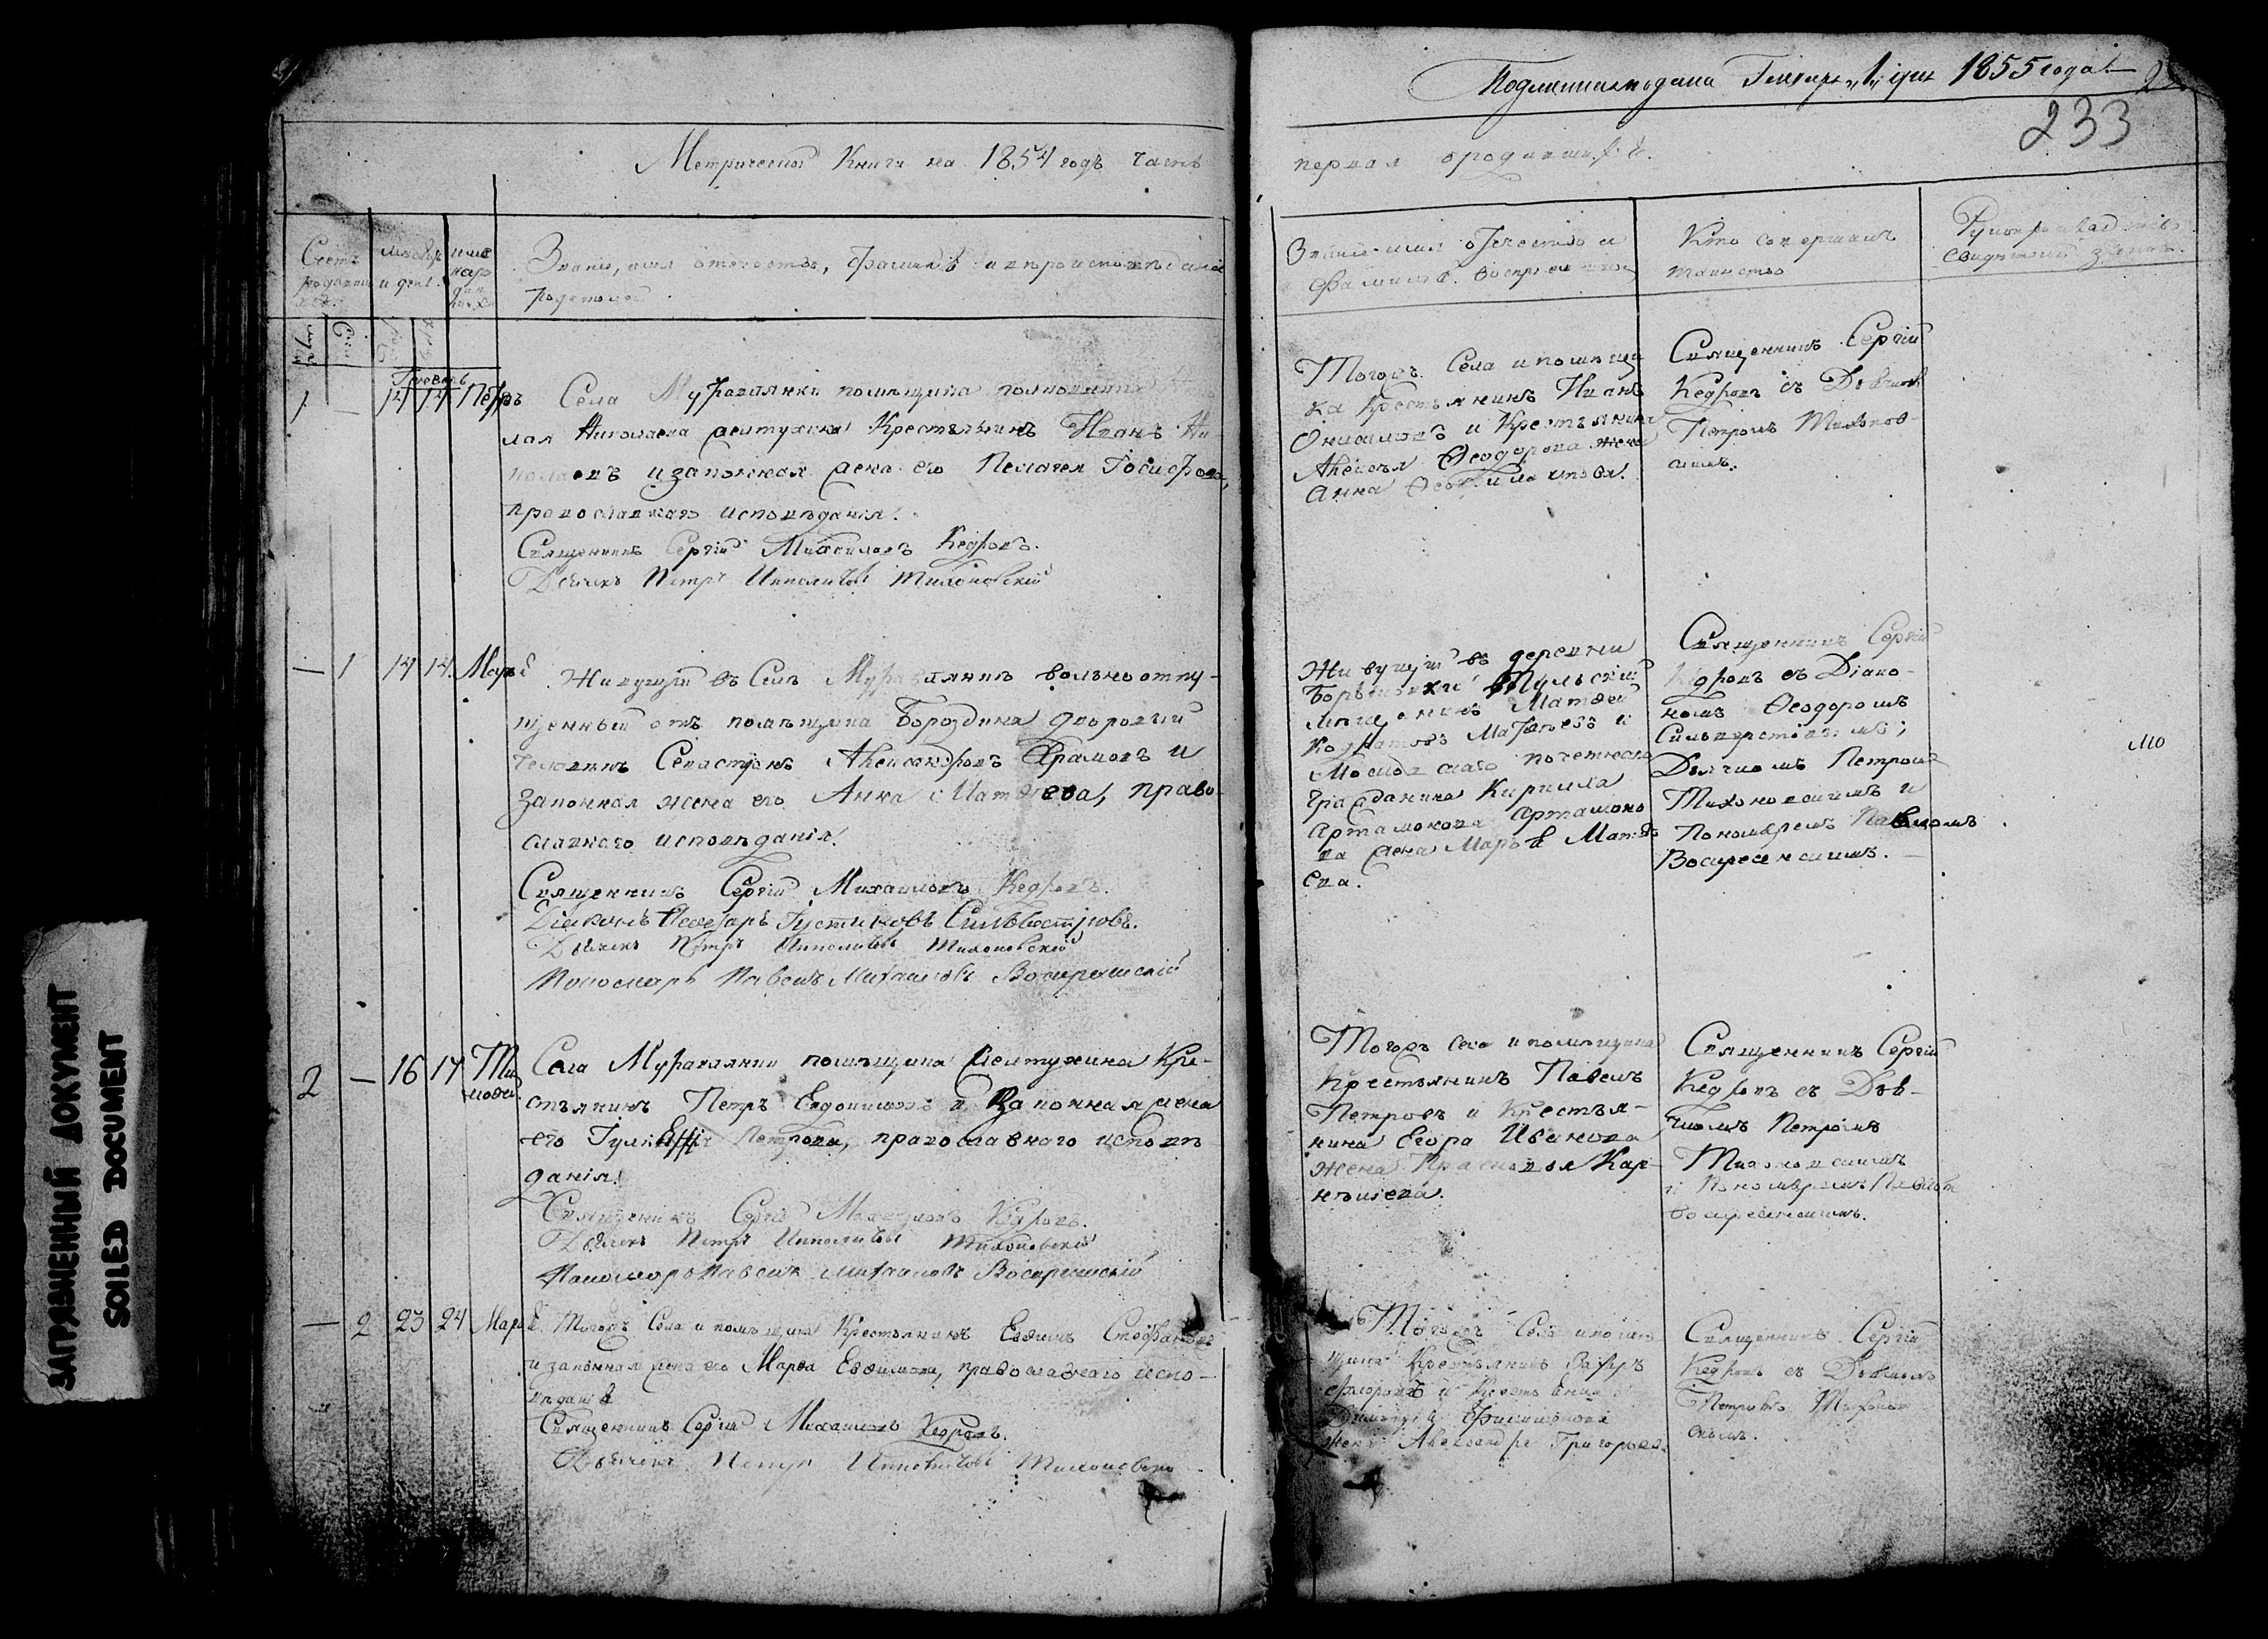 Подлинная подана Генваря „1„ дня 1855 года.
233
Метрической Книги на 1854 годъ часть
первая о родившихся.
Счетъ родившихся
мѣсяцъ и день
имя народившихся
Званіе, имя отечество, фамилія и вѣроисповѣданіе
родителей
Званіе имя отчество и
фамилія воспріемниковъ
Кто совершалъ
таинство
Рукоприкладство
свидѣтелей записи
Генварь
1 — 14 14 Петръ
Села Муравлянки помѣщика полковника
лая Николаева Желтухина Крестьянинъ Иванъ Ни-
колаевъ и законная жена его Пелагея Іосифова,
православнаго исповѣданія.
Священникъ Сергій Михаиловъ Кедровъ.
Дьячекъ Петръ Ипполитовъ Тихоновскій
Тогожъ Села и помѣщи
ка Крестьянинъ Иванъ
Онисимовъ и Крестьянина
Алексѣя Ѳеодорова жена
Анна
Священникъ Сергій
Кедровъ съ Дьячкомъ
Петромъ Тихонов-
скимъ.
— 1 14 14. Марѳа
Живущій въ Селѣ Муравлянкѣ вольноотпу-
щенный отъ помѣщика Бороздина дворовый
человѣкъ Севастьянъ Александровъ Храмовъ и
законная жена его Анна Матвѣева, право-
славнаго исповѣданія.
Священникъ Сергій Михаиловъ Кедровъ.
Діаконъ Ѳеодоръ Іустиновъ Сильвестровъ.
Дьячекъ Петръ Ипполитовъ Тихоновскій
Пономарь Павелъ Михаиловъ Воскресенскій
Живущій въ деревни
Тульскій
мѣщанинъ Матвей
и
Московскаго почетнаго
гражданина Кирилла
Артамонова Артамоно
ва жена Марья Матвѣ
ева.
Священникъ Сергій
Кедровъ съ Діако-
номъ Ѳеодоромъ
Сильверстовымъ;
Дьячкомъ Петромъ
Тихоновскимъ и
Пономаремъ Павломъ
Воскресенскимъ.
2 — 16 17 Тимоѳей
Села Муравлянки помѣщика Желтухина Кре-
стьянинъ Петръ Евдокимовъ и Законная жена
его Петрова, православнаго исповѣ
данія.
Священникъ Сергій Михаиловъ Кедровъ.
Дьячекъ Петръ Ипполитовъ Тихоновскій
Пономарь Павелъ Михаиловъ Воскресенскій
Тогожъ села и помѣщика
Крестьянинъ Павелъ
Петровъ и Крестья-
нина Егора Иванова
жена Прасковья Кар-
нѣиева.
Священникъ Сергій
Кедровъ съ Дья-
чкомъ Петромъ
Тихоновскимъ
и Пономаремъ Павломъ
Воскресенскимъ.
— 2 23 24 Марья
Тогожъ Села и помѣщика Крестьянинъ Евѳимъ Стефановъ
и законная жена его Марѳа Евѳимова, православнаго испо-
вѣданія
Священникъ Сергій Михаиловъ Кедровъ.
Дьячекъ Петръ Ипполитовъ Тихоновскій
Тогожъ Села и помѣ
щика Крестьянинъ
и Крестьянина
жена Александра Григорьева
Священникъ Сергій
Кедровъ съ Дьячкомъ
Петромъ Тихонов
скимъ.
ЗАГРЯЗНЕННЫЙ ДОКУМЕНТ
SOILED DOCUMENT